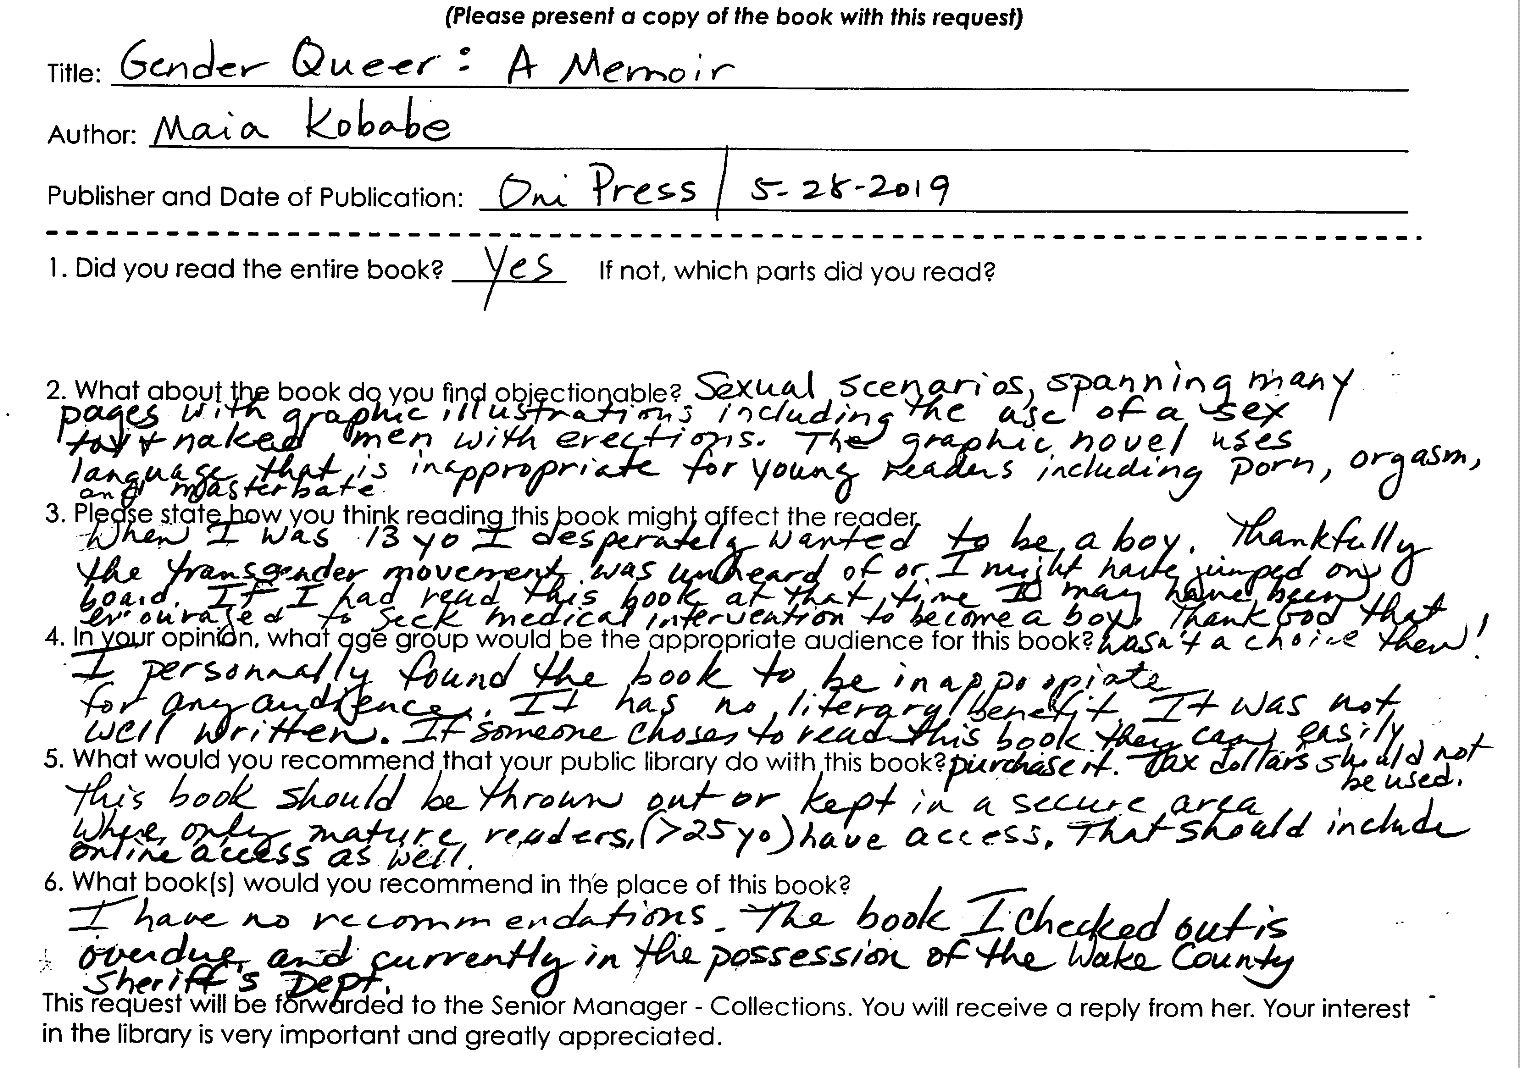 (Please present a copy of the book with this request)
Title: Gender Queer: A Memoir
Author: Maia Kobabe
Publisher and Date of Publication: Oni Press / 5-28-2019
1. Did you read the entire book? Yes If not, which parts did you read?
2. What about the book do you find objectionable? Sexual scenarios, spanning many
pages with graphic illustrations including the use of a sex
toy & naked men with erections. The graphic novel uses
language that is inappropriate for young readers including porn, orgasm,
and masterbate.
3. Please state how you think reading this book might affect the reader.
When I was 13 yo I desperately wanted to be a boy. Thankfully
the transgender movement was unheard of or I might have jumped on
board. If I had read this book at that time I may have been
encouraged to seek medical intervention to become a boy. Thank God that
4. In your opinion, what age group would be the appropriate audience for this book? wasn't a choice then!
I personally found the book to be inappropriate
for any audience. It has no literary benefit. It was not
well written. If someone choses to read this book they can easily
5. What would you recommend that your public library do with this book? purchase it. Tax dollars should not
be used.
This book should be thrown out or kept in a secure area
where only mature readers (>25 yo) have access. That should include
online access as well.
6. What book(s) would you recommend in the place of this book?
I have no recommendations. The book I checked out is
overdue and currently in the possession of the Wake County
Sheriff's Dept.
This request will be forwarded to the Senior Manager - Collections. You will receive a reply from her. Your interest
in the library is very important and greatly appreciated.